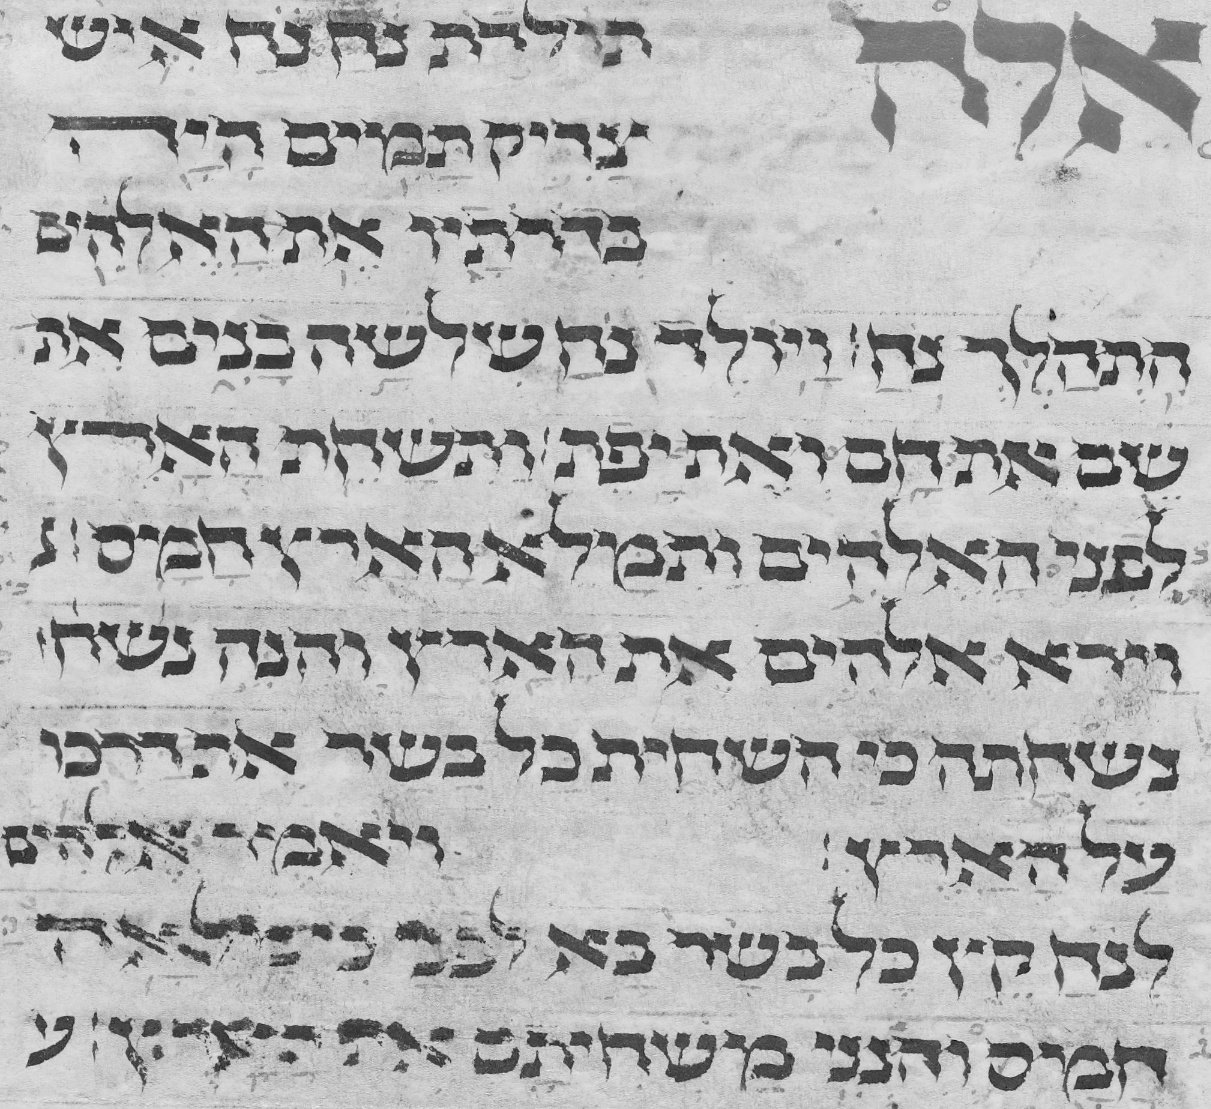 אלה תולדת נח נח איש
צדיק תמים היה
בדרתיו את האלהים
התהלך נח׃ ויולד נח שלשה בנים את
שם את חם ואת יפת׃ ותשחת הארץ
לפני האלהים ותמלא הארץ חמס׃
וירא אלהים את הארץ והנה נשח
נשחתה כי השחית כל בשר את דרכו
על הארץ׃ ויאמר אלהים
לנח קץ כל בשר בא לפני כי מלאה
חמס והנני משחיתם את הארץ׃ ע